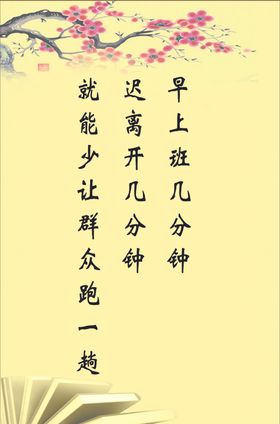 早上班几分钟
迟离开几分钟
就能少让群众跑一趟